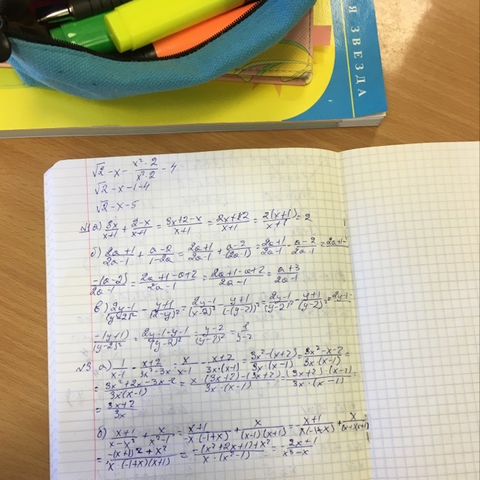 Я ЗВЕЗДА
√2 - x - (x²-2)/(x²-2) - 4
√2 - x - 1 - 4
√2 - x - 5
№1 а) 3x/(x+1) + (2-x)/(x+1) = (3x+2-x)/(x+1) = (2x+2)/(x+1) = 2(x+1)/(x+1) = 2
б) (2a+1)/(2a-1) + (a-2)/(1-2a) = (2a+1)/(2a-1) + (a-2)/-(2a-1) = (2a+1)/(2a-1) - (a-2)/(2a-1) = 2a+1-
-(a-2)/(2a-1) = (2a+1-a+2)/(2a-1) = (2a+1-a+2)/(2a-1) = (a+3)/(2a-1)
в) (2y-1)/(y-2)² - (y+1)/(2-y)² = (2y-1)/(y-2)² - (y+1)/(-(y-2))² = (2y-1)/(y-2)² - (y+1)/(y-2)² = 2y-1-
-(y+1)/(y-2)² = (2y-1-y-1)/(y-2)² = (y-2)/(y-2)² = 1/(y-2)
№3. а) 1/(x-1) - (x+2)/(3x²-3x) = x/(x-1) - (x+2)/(3x·(x-1)) = (3x²-(x+2))/(3x·(x-1)) = (3x²-x-2)/(3x·(x-1)) =
= (3x²+2x-3x-2)/(3x(x-1)) = (x·(3x+2)-(3x+2))/(3x·(x-1)) = ((3x+2)·(x-1))/(3x·(x-1)) =
= (3x+2)/3x
б) (x+1)/(x-x²) + x/(x²-1) = (x+1)/(-x·(-1+x)) + x/((x-1)(x+1)) = (x+1)/(-x(-1+x)) + x/((x-1)(x+1)) =
= (-(x+1)²+x²)/(x·(-1+x)(x+1)) = (-(x²+2x+1)+x²)/(x·(x²-1)) = -(2x+1)/(x³-x)